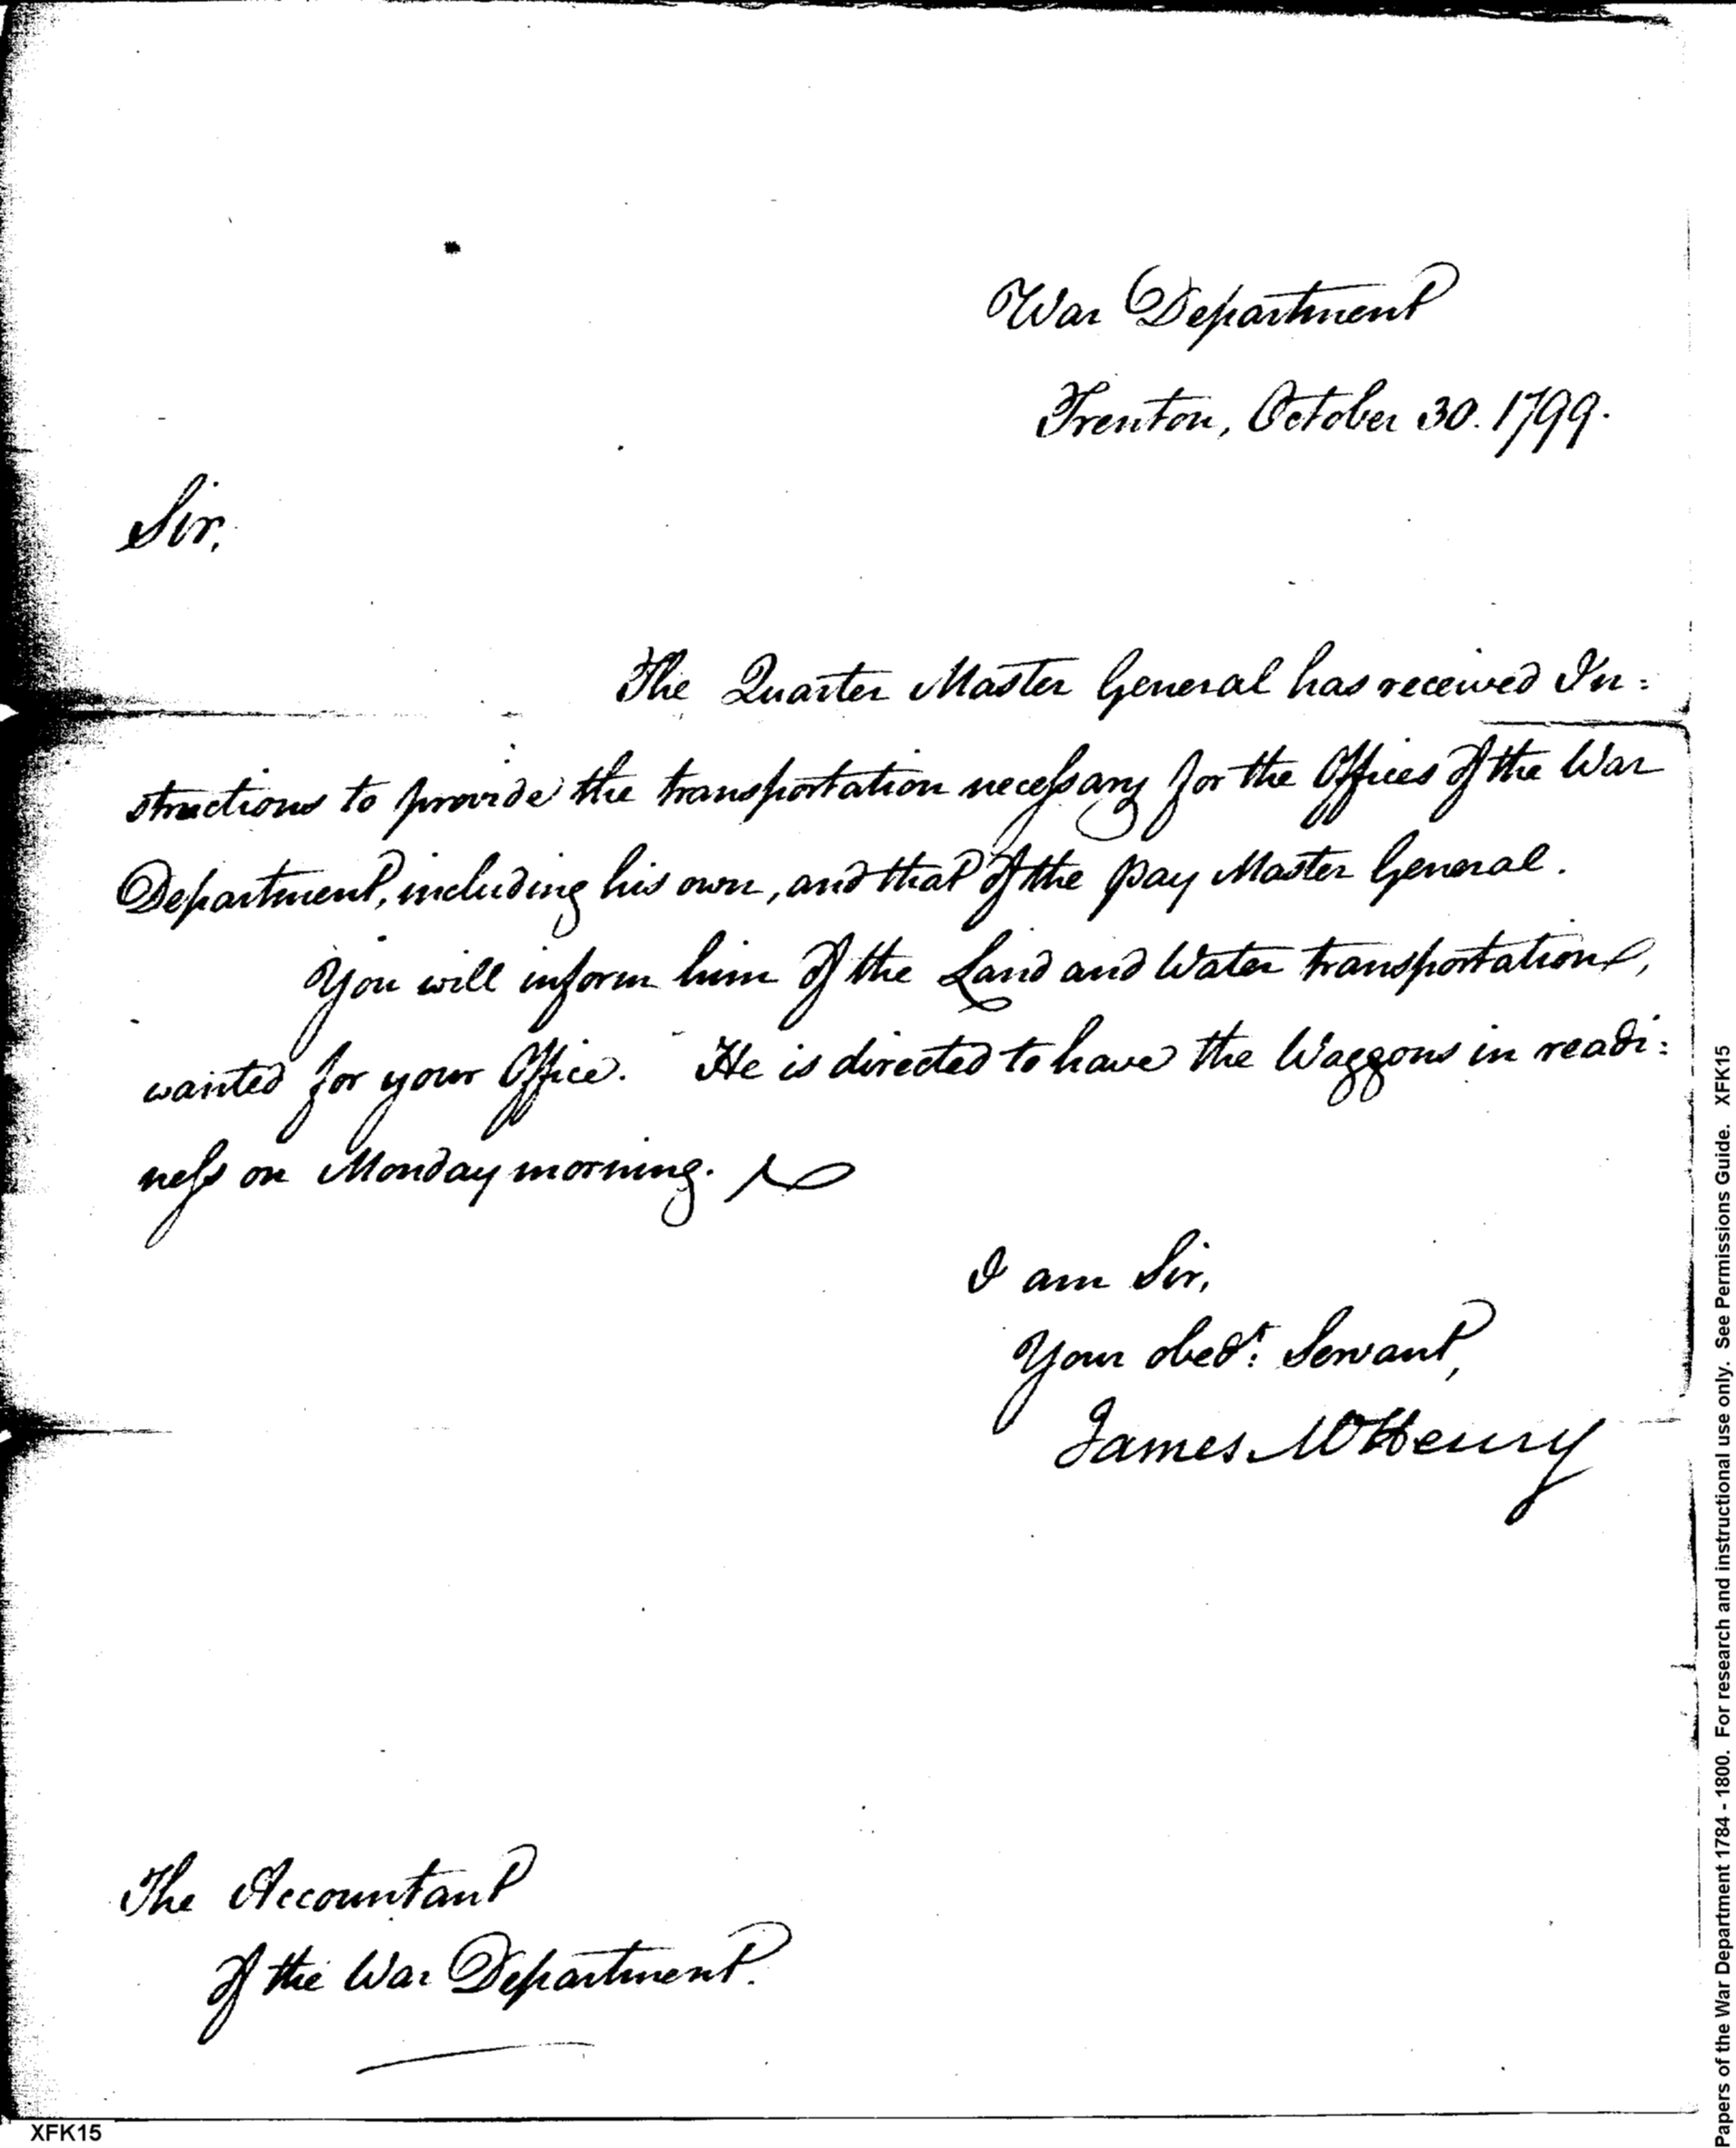 War Department
Trenton, October 30. 1799.
Sir,
The Quarter Master General has received In=
structions to provide the transportation necessary for the Offices of the War
Department, including his own, and that of the Pay Master General.
You will inform him of the Land and Water transportation,
wanted for your Office. He is directed to have the Waggons in readi=
ness on Monday morning.
I am Sir,
Your obedt. Servant,
James McHenry
The Accountant
of the War Department.
XFK15
Papers of the War Department 1784 - 1800. For research and instructional use only. See Permissions Guide. XFK15